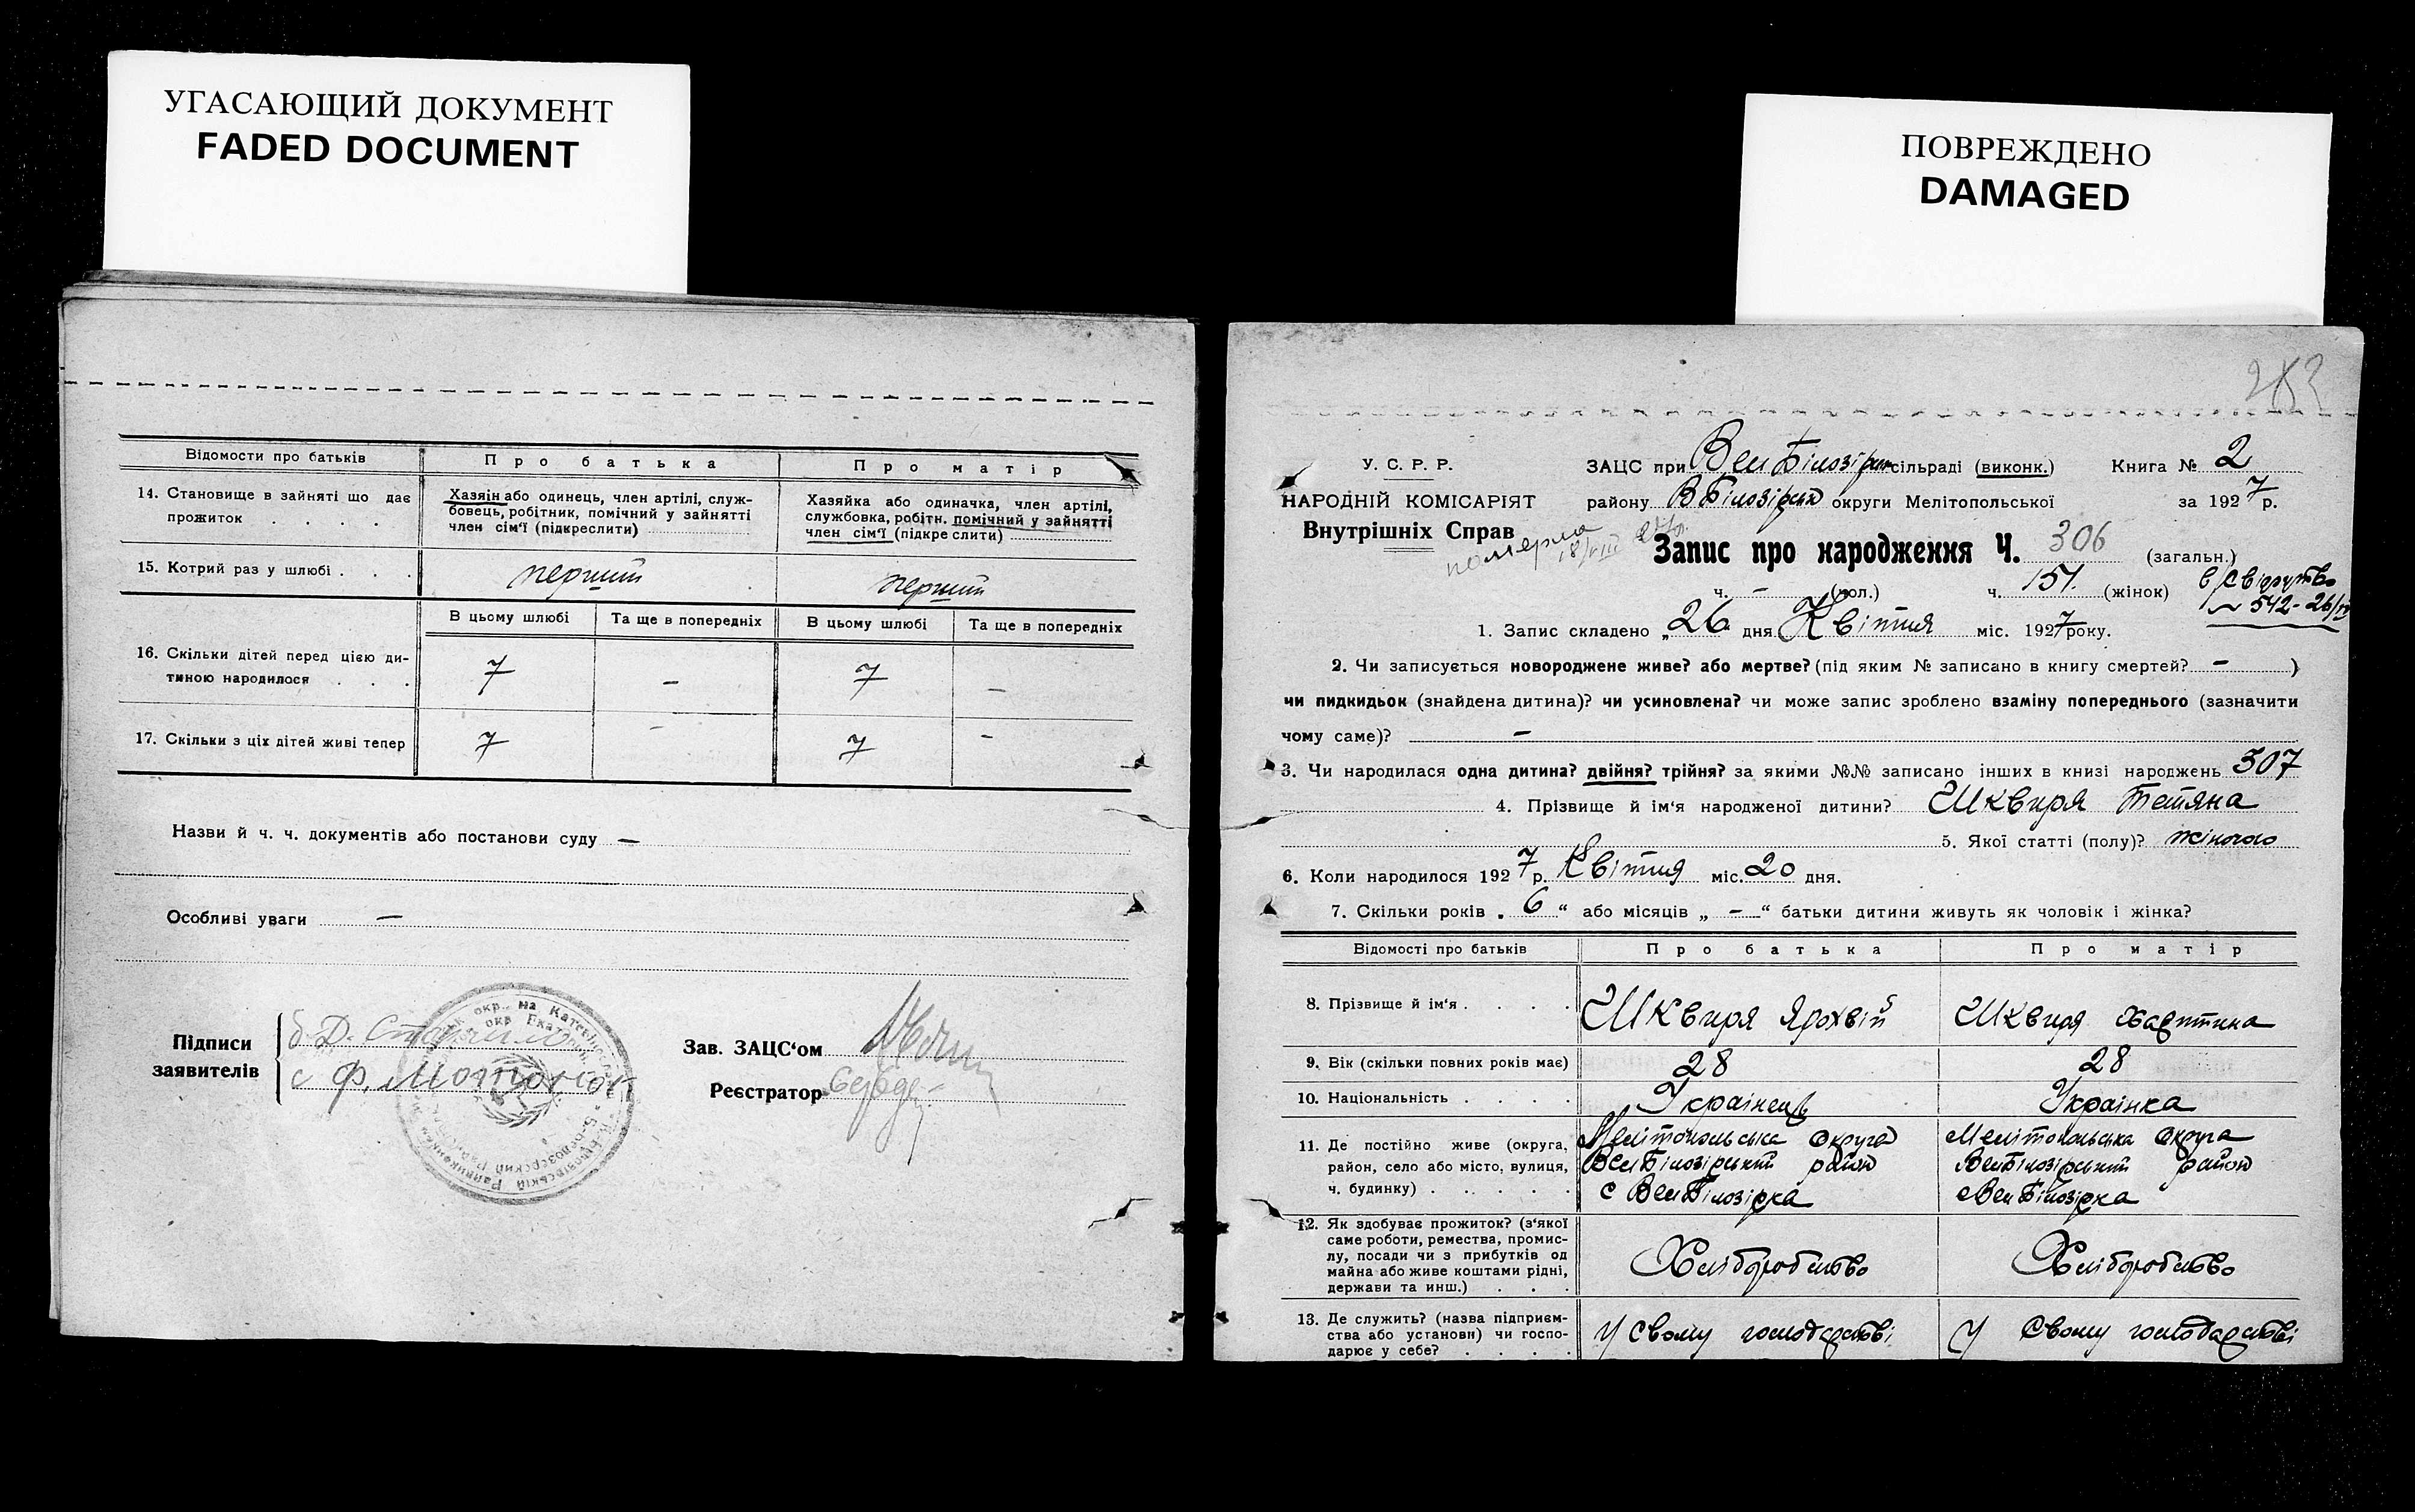 УГАСАЮЩИЙ ДОКУМЕНТ
FADED DOCUMENT
Відомости про батьків
Про батька
Про матір
14. Становище в зайняті що дає
прожиток . . . .
Хазяін або одинець, член артілі, служ-
бовець, робітник, помічний у зайнятті
член сім'ї (підкреслити)
Хазяйка або одиначка, член артілі,
службовка, робітн. помічний у зайнятті
член сім'ї (підкре слити)
15. Котрий раз у шлюбі . . .
перший
перший
В цьому шлюбі
Та ще в попередніх
В цьому шлюбі
Та ще в попередніх
16. Скільки дітей перед цією ди-
тиною народилося . . .
7
—
7
—
17. Скільки з ціх дітей живі тепер
7
—
7
—
Назви й ч. ч. документів або постанови суду —
Особливі уваги —
Підписи
заявителів
Ф.
Зав. ЗАЦС'ом
Реєстратор
ПОВРЕЖДЕНО
DAMAGED
У. С. Р. Р.
НАРОДНІЙ КОМІСАРІЯТ
Внутрішніх Справ
померла
18/VIII 27 р.
ЗАЦС при Вел Білозірськ сільраді (виконк.) Книга № 2
району В Білозірськ округи Мелітопольської за 1927 р.
Запис про народження Ч. 306 (загальн.)
ч. — (чол.) ч. 151. (жінок)
1. Запис складено „26 дня Квітня міс. 1927 року.
2. Чи записується новороджене живе? або мертве? (під яким № записано в книгу смертей? — )
чи пидкидьок (знайдена дитина)? чи усиновлена? чи може запис зроблено взаміну попереднього (зазначити
чому саме)? —
3. Чи народилася одна дитина? двійня? трійня? за якими №№ записано інших в книзі народжень 307
4. Прізвище й ім'я народженої дитини? Шквиря Тетяна
5. Якої статті (полу)? жіночого
6. Коли народилося 1927 р. Квітня міс. 20 дня.
7. Скільки років „ 6 “ або місяців „ — “ батьки дитини живуть як чоловік і жінка?
Відомості про батьків
Про батька
Про матір
8. Прізвище й ім'я . . . .
Шквиря Ярохвій
Шквиря Харитина
9. Вік (скільки повних років має)
28
28
10. Національність . . . .
Українець
Українка
11. Де постійно живе (округа,
район, село або місто, вулиця,
ч. будинку) . . . . .
Мелітопольська округа
Вел Білозірський район
с Вел Білозірка
Мелітопольська округа
Вел Білозірський район
с Вел Білозірка
12. Як здобуває прожиток? (з'якої
саме роботи, ремества, промис-
лу, посади чи з прибутків од
майна або живе коштами рідні,
держави та инш.) . . .
Хліборобство
Хліборобство
13. Де служить? (назва підприєм-
ства або установи) чи госпо-
дарює у себе? . . . .
У свому господарстві
У свому господарстві